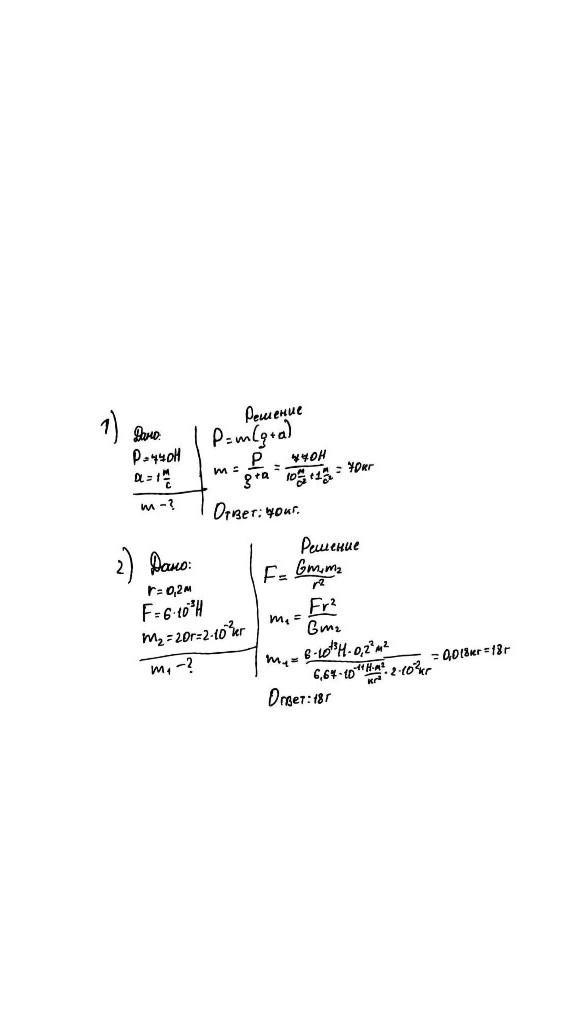 1) Дано:
P=770H
a=1 м/с
m-?
Решение
P=m(g+a)
m = P/(g+a) = 770H/(10 м/с² + 1 м/с²) = 70кг
Ответ: 70кг.
2) Дано:
r=0,2м
F=6·10⁻³H
m₂=20г=2·10⁻²кг
m₁-?
Решение
F= Gm₁m₂/r²
m₁= Fr²/Gm₂
m₁= 6·10⁻¹³H·0,2²м²/(6,67·10⁻¹¹ H·м²/кг² · 2·10⁻²кг) = 0,018кг=18г
Ответ: 18г